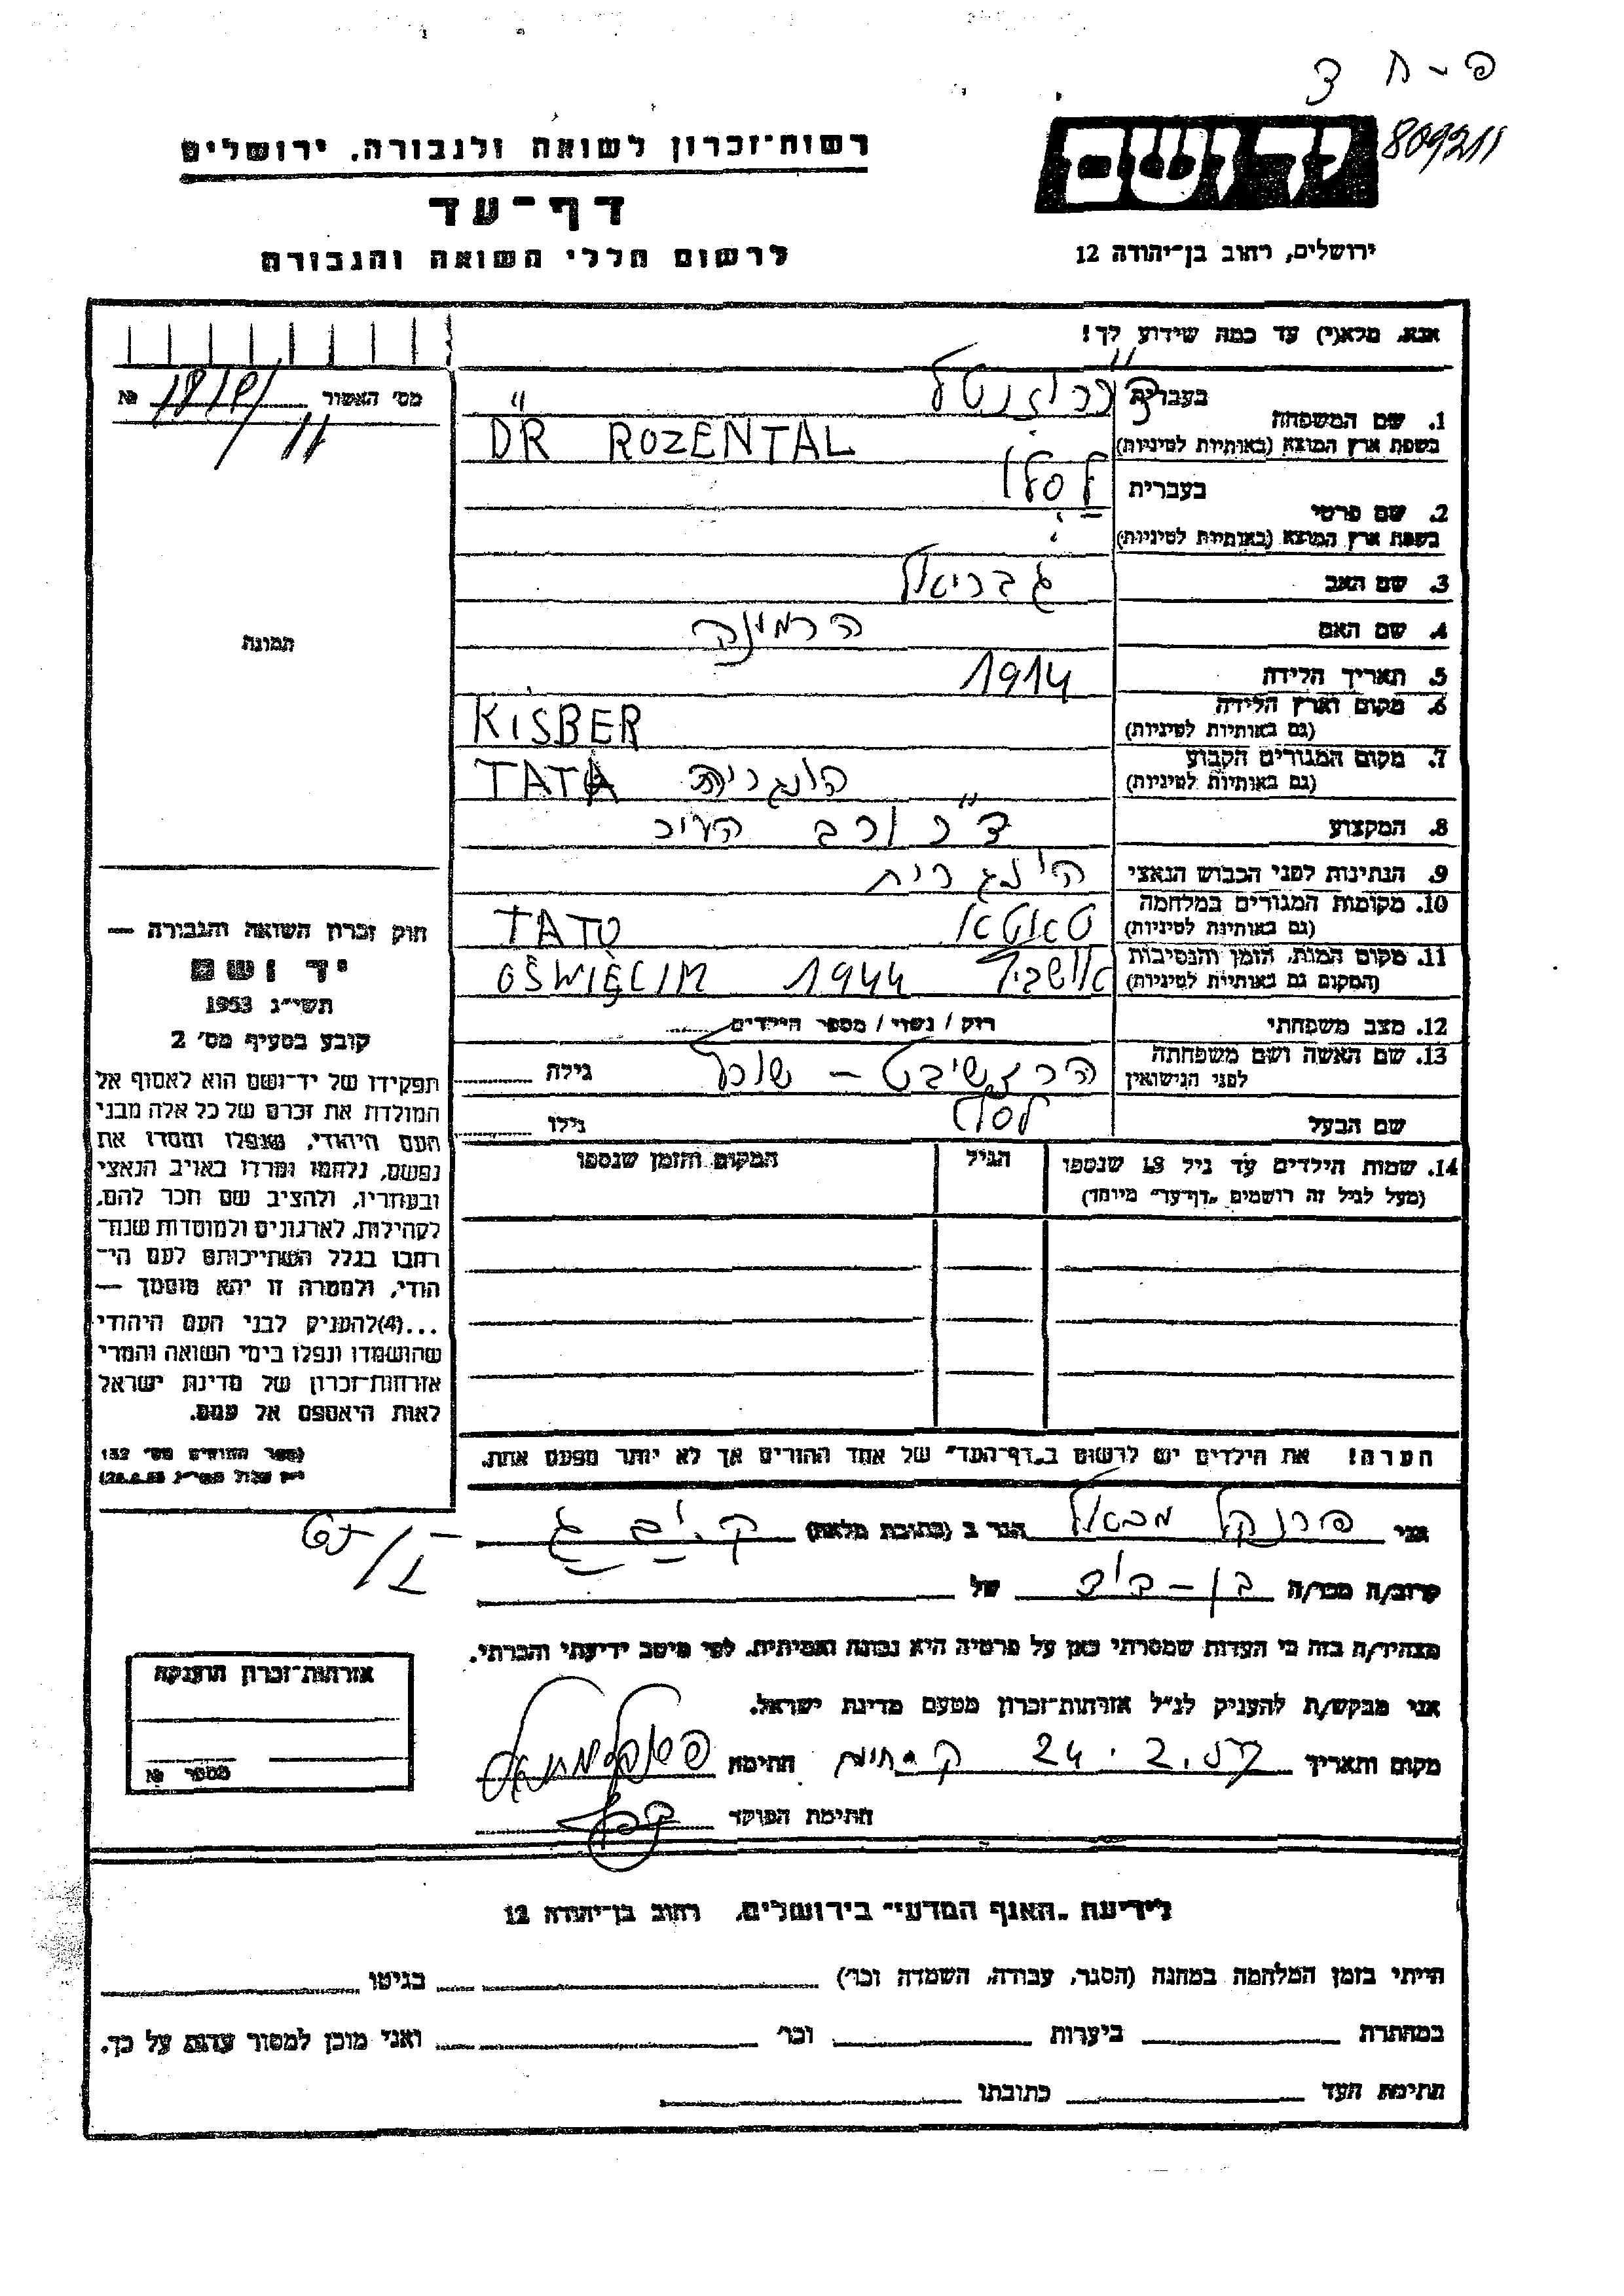 רשות־זכרון לשואה ולגבורה. ירושלים
דף־עד
לרשום חללי השואה והגבורה
יד ושם
ירושלים, רחוב בן־יהודה 12
אנא, מלא(י) עד כמה שידוע לך!
מס' האשור № 
תמונה
1. שם המשפחה בעברית ד"ר רוזנטל
בשפת ארץ המוצא (באותיות לטיניות) DR ROZENTAL
2. שם פרטי בעברית לסלו
בשפת ארץ המוצא (באותיות לטיניות)
3. שם האב גבריאל
4. שם האם הרמינה
5. תאריך הלידה 1914
6. מקום וארץ הלידה (גם באותיות לטיניות) KISBER
7. מקום המגורים הקבוע (גם באותיות לטיניות) הונגריה TATA
8. המקצוע ד"ר ורב העיר
9. הנתינות לפני הכבוש הנאצי הונגרית
10. מקומות המגורים במלחמה (גם באותיות לטיניות) טאטא TATA
11. מקום המות, הזמן והנסיבות (המקום גם באותיות לטיניות) אושביץ 1944 OŚWIĘCIM
12. מצב משפחתי רוק / נשוי / מספר הילדים
13. שם האשה ושם משפחתה לפני הנישואין גילה
שם הבעל לסלו גילו
14. שמות הילדים עד גיל 18 שנספו הגיל המקום והזמן שנספו
(מעל לגיל זה רושמים "דף־עד" מיוחד)
הערה! את הילדים יש לרשום ב"דף־העד" של אחד ההורים אך לא יותר מפעם אחת.
חוק זכרון השואה והגבורה —
יד ושם
תשי"ג 1953
קובע בסעיף מס' 2
תפקידו של יד־ושם הוא לאסוף אל
המולדת את זכרם של כל אלה מבני
העם היהודי, שנפלו ומסרו את
נפשם, נלחמו ומרדו באויב הנאצי
ובעוזריו, ולהציב שם וזכר להם,
לקהילות, לארגונים ולמוסדות שנח־
רבו בגלל השתייכותם לעם הי־
הודי, ולמטרה זו יהא מוסמך —
...(4)להעניק לבני העם היהודי
שהושמדו ונפלו בימי השואה והמרי
אזרחות־זכרון של מדינת ישראל
לאות היאספם אל עמם.
אני פרנקל הגר ב (כתובת מלאה)
קרוב/ה מכר/ה בן-דוד של
מצהיר/ה בזה כי העדות שמסרתי כאן על פרטיה היא נכונה ואמיתית, לפי מיטב ידיעתי והכרתי.
אני מבקש/ת להעניק לנ"ל אזרחות־זכרון מטעם מדינת ישראל.
מקום ותאריך 24.2.57 חתימה
חתימת הפוקד
אזרחות־זכרון הוענקה
מספר №
לידיעת "האגף המדעי" בירושלים, רחוב בן־יהודה 12
הייתי בזמן המלחמה במחנה (הסגר, עבודה, השמדה וכו') בגיטו
במחתרת ביערות וכו' ואני מוכן למסור עדות על כך.
חתימת העד כתובתו